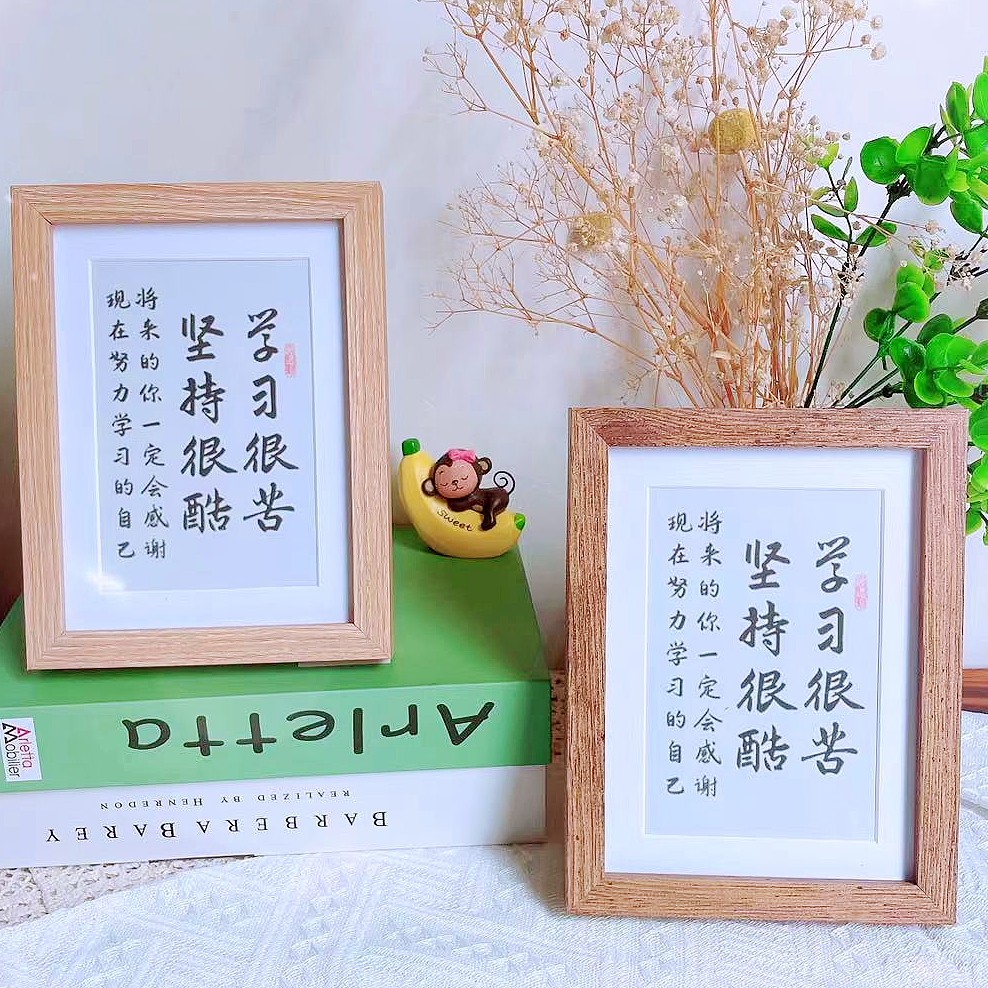 学习很苦
坚持很酷
将来的你一定会感谢
现在努力学习的自己
Sweet
Arletta
Arletta
Mobilier
REALIZED BY HENREDON
BARBERA BAREY
学习很苦
坚持很酷
将来的你一定会感谢
现在努力学习的自己